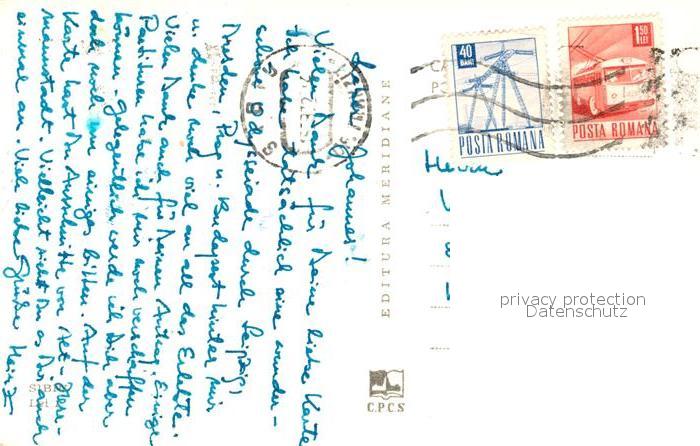 Lieber Johannes!
Vielen Dank für Deine liebe Karte
Ich habe tatsächlich eine wunder-
schöne Odyssiade durch Leipzig,
Dresden, Prag u. Budapest hinter mir
u. denke noch viel an all das Erlebte.
Vielen Dank auch für Deinen Antrag. Einige
Partituren habe ich mir noch verschaffen
können. Gelegentlich werde ich Dich aber
doch noch um einiges bitten. Auf der
Karte hast Du Ausschnitte von Alt-Herr-
mannstadt. Vielleicht siehst Du es Dir auch
einmal an. Viele liebe Grüße Heinz
SIBIU
EDITURA MERIDIANE
C.P.C.S
40
BANI
POSTA ROMANA
1,50
LEI
POSTA ROMANA
Herrn
privacy protection
Datenschutz